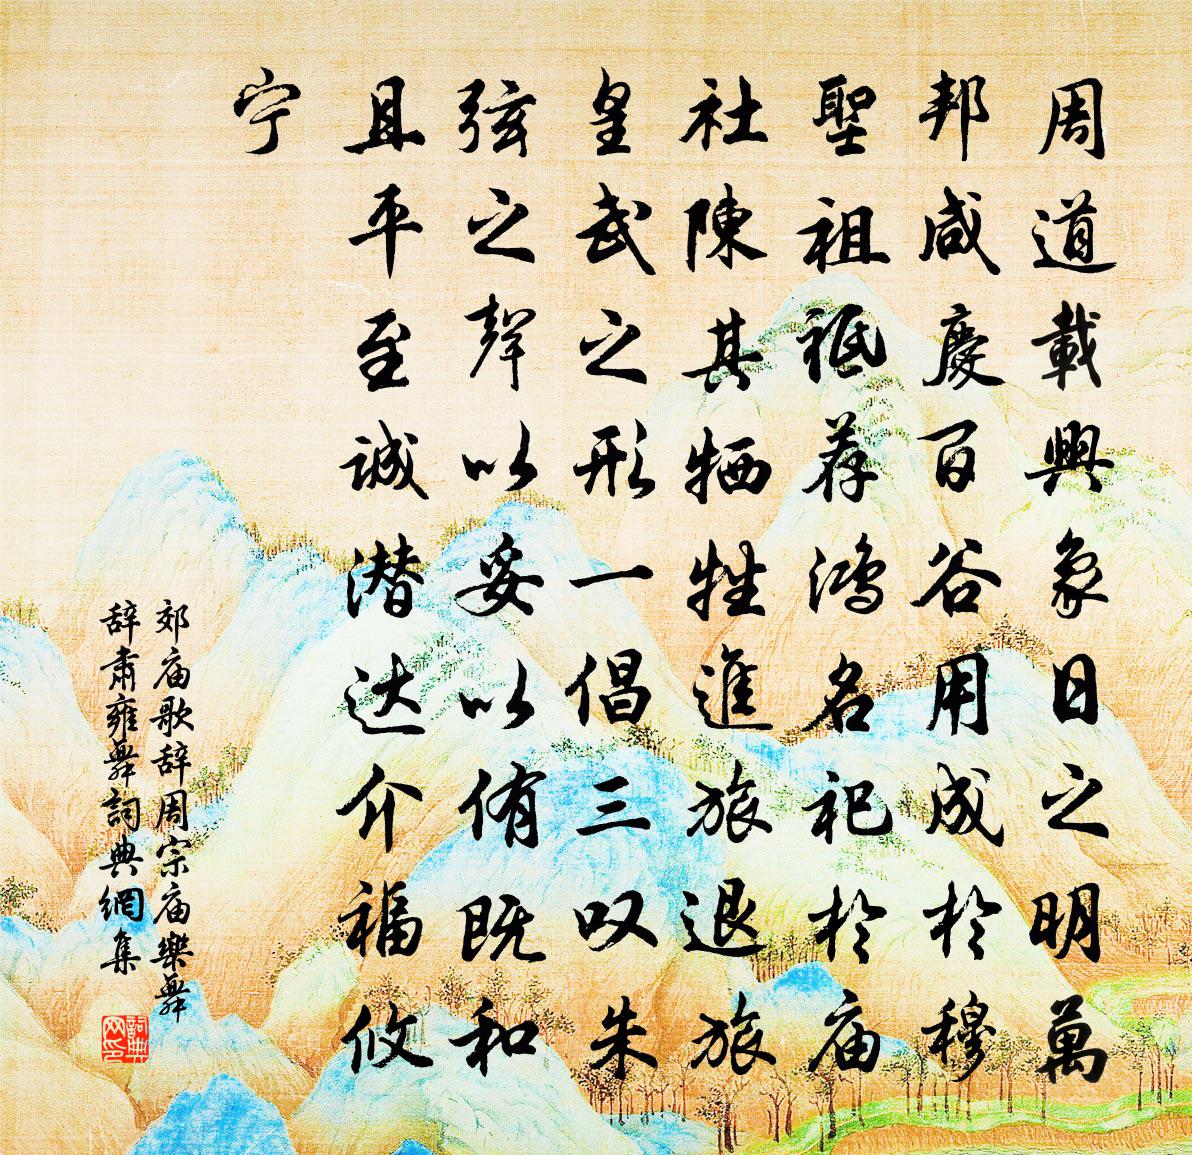 周道載興象日之明萬
邦咸慶百谷用成於穆
聖祖祗荐鴻名祀於庙
社陳其牺牲進旅退旅
皇武之形一倡三叹朱
弦之聲以妥以侑既和
且平至誠潜达介福攸
宁
郊庙歌辞周宗庙樂舞
辞肅雍舞詞典網集
詞典
网印